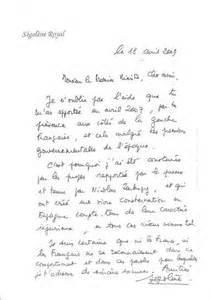 Ségolène Royal
le 18 avril 2009
Monsieur le Premier Ministre, Cher ami,
Je n'oublie pas l'aide que tu
m'as apportée en avril 2007, par ta
présence aux côtés de la gauche
française, et cela malgré les
gouvernementales de l'époque.
C'est pourquoi j'ai été consternée
par les propos rapportés par la presse
et tenus par Nicolas Sarkozy, et qui
ont créé une vive consternation en
Espagne compte tenu de leur caractère
injurieux,
Je suis certaine que ni la France, ni
les Français ne se reconnaissent dans ce
comportement et dans ces
j't'adresse de sincères excuses. Amitiés
Ségolène